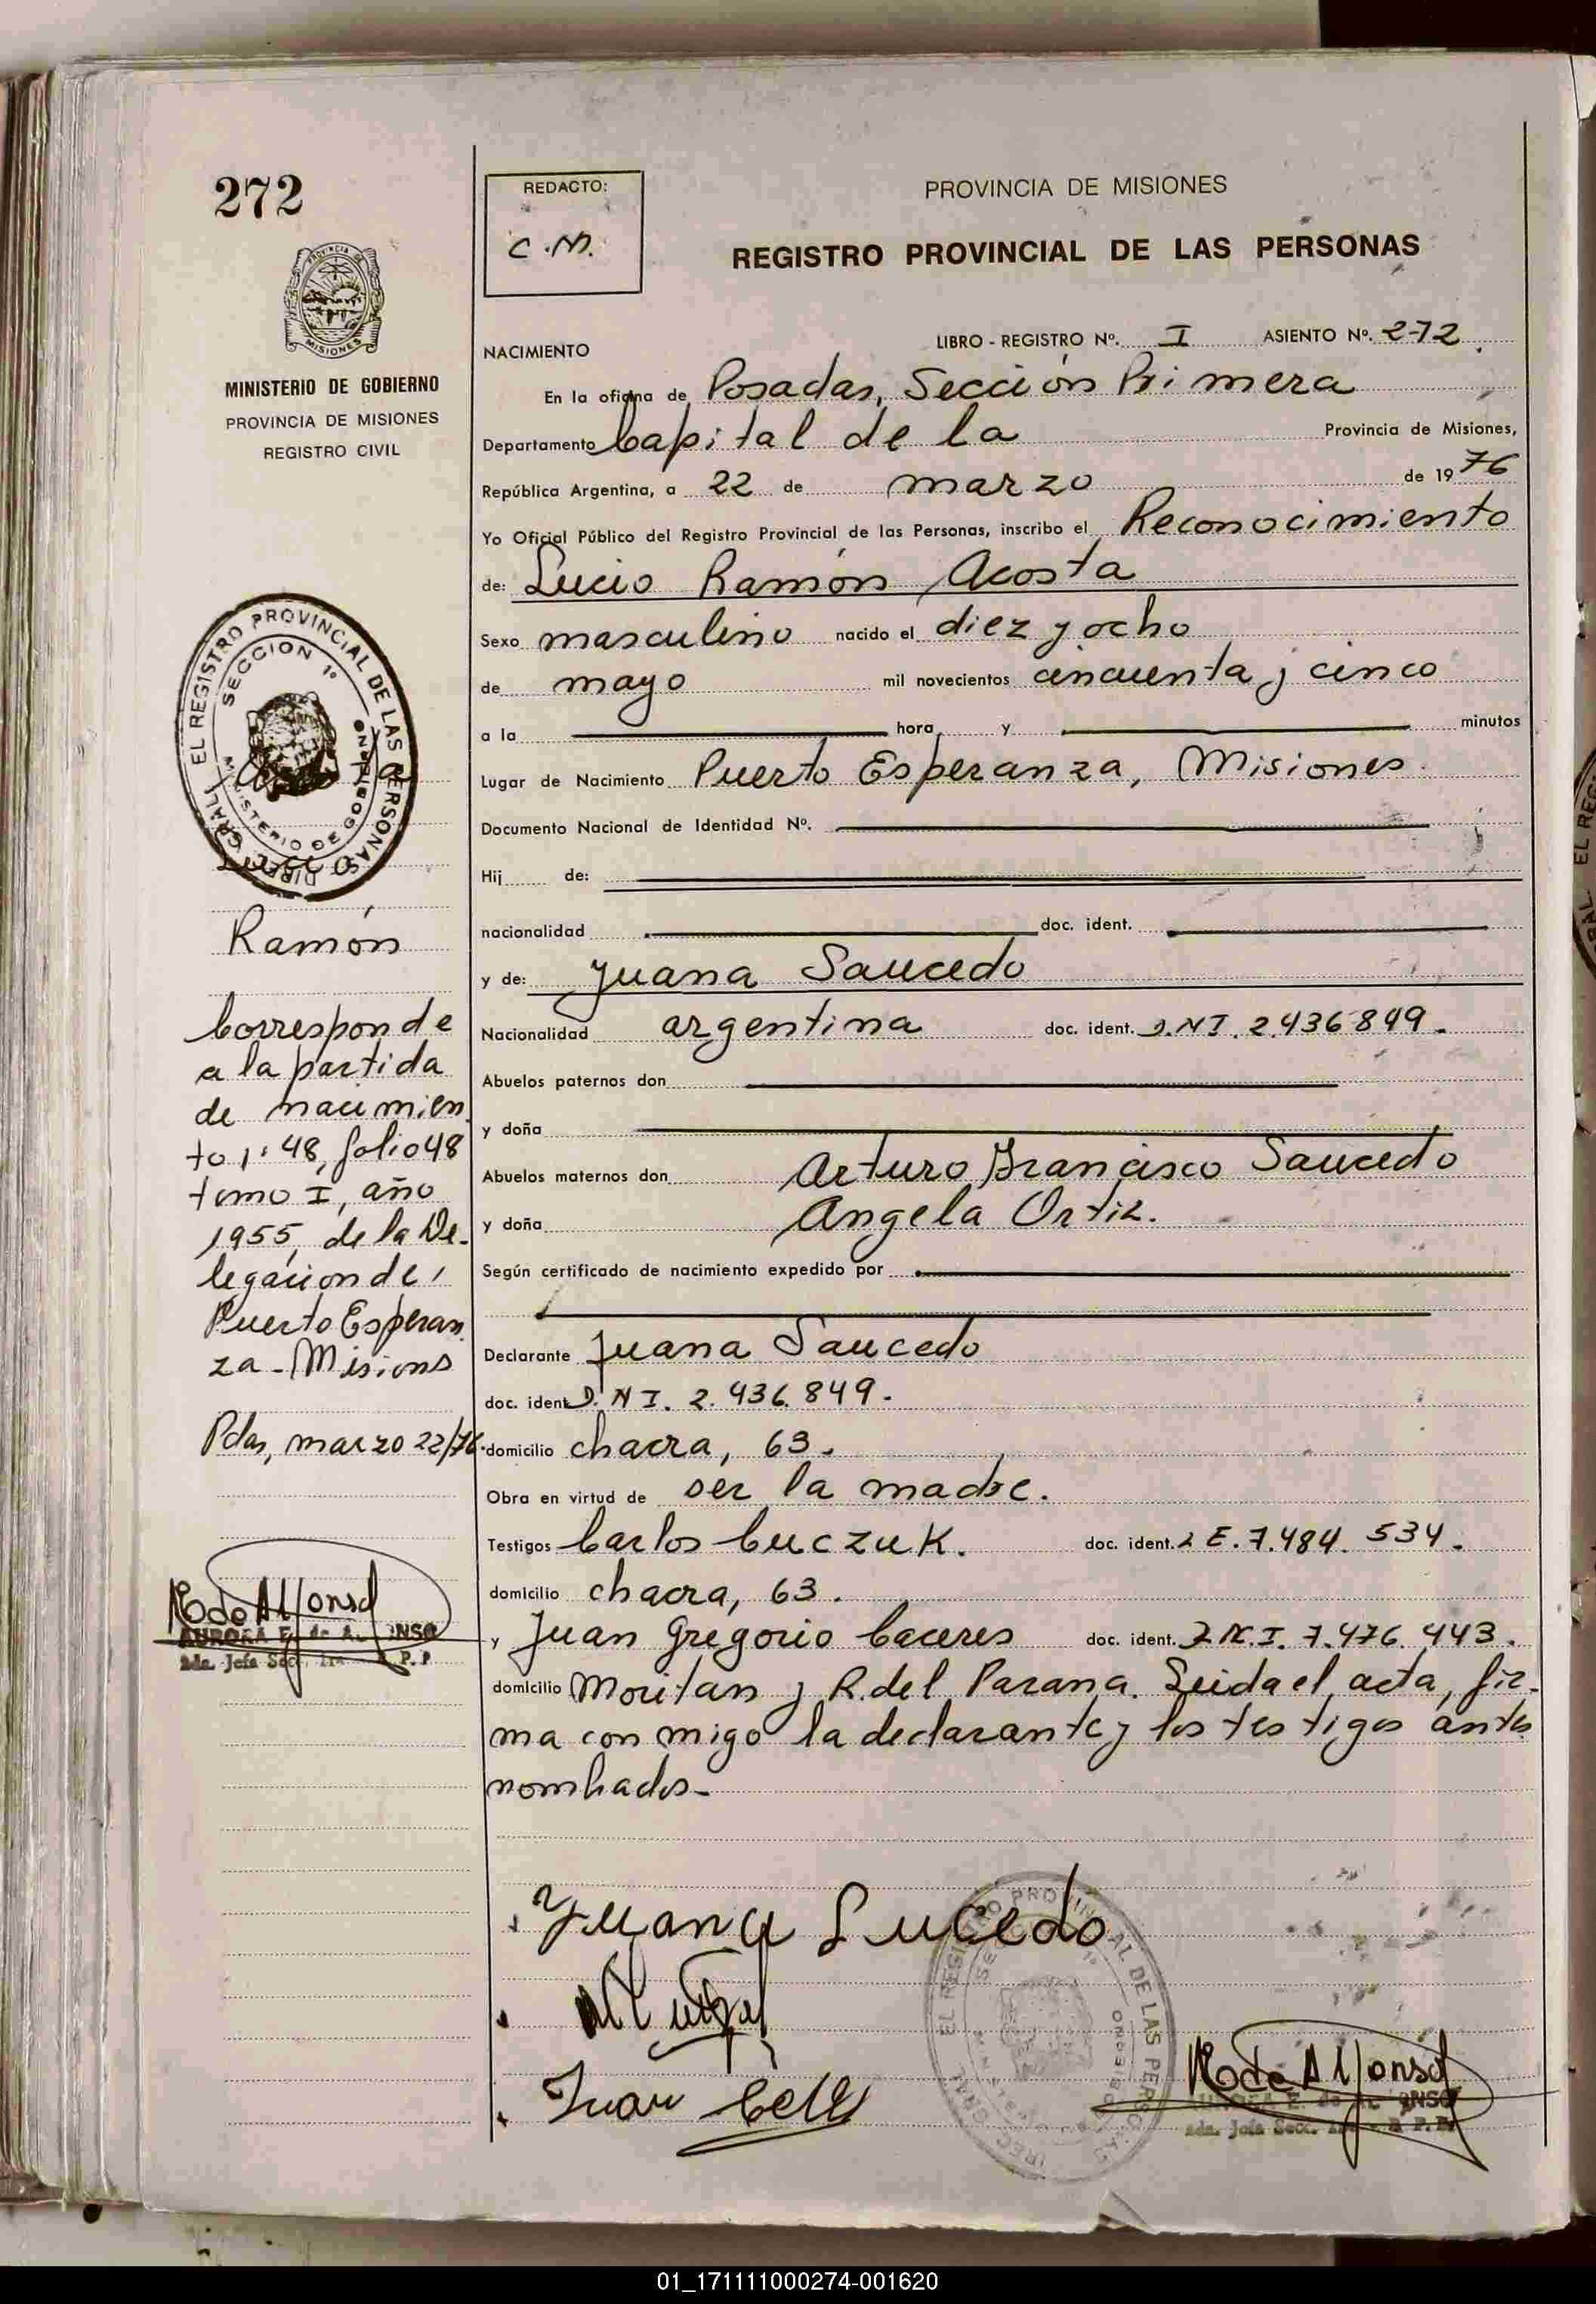 272
MINISTERIO DE GOBIERNO
PROVINCIA DE MISIONES
REGISTRO CIVIL
EL REGISTRO PROVINCIAL DE LAS PERSONAS
SECCION 1º
MINISTERIO DE GOBIERNO
Acosta
Lucio
Ramón
Corresponde
a la partida
de nacimien
to 1: 48, folio 48
tomo I, año
1955, de la De-
legación de
Puerto Esperan
za - Misions
Pdas, marzo 22/76.
AURORA E. de ALFONSO
REDACTO:
C.M.
PROVINCIA DE MISIONES
REGISTRO PROVINCIAL DE LAS PERSONAS
NACIMIENTO
LIBRO - REGISTRO Nº. I ASIENTO Nº. 272.
En la oficina de Posadas, Sección Primera
Departamento Capital de la Provincia de Misiones,
República Argentina, a 22 de marzo de 1976
Yo Oficial Público del Registro Provincial de las Personas, inscribo el Reconocimiento
de: Lucio Ramón Acosta
Sexo masculino nacido el diez y ocho
de mayo mil novecientos cincuenta y cinco
a la hora y minutos
Lugar de Nacimiento Puerto Esperanza, Misiones.
Documento Nacional de Identidad Nº.
Hij de:
nacionalidad doc. ident.
y de: Juana Saucedo
Nacionalidad argentina doc. ident. D.N.I. 2.436.849.
Abuelos paternos don
y doña
Abuelos maternos don Arturo Francisco Saucedo
y doña Angela Ortiz.
Según certificado de nacimiento expedido por
Declarante Juana Saucedo
doc. ident. D.N.I. 2.436.849.
domicilio chacra, 63.
Obra en virtud de ser la madre.
Testigos Carlos Cuczuk. doc. ident. L E. 7.484.534.
domicilio chacra, 63.
y Juan Gregorio Caceres doc. ident. 7.476.443.
domicilio Moritan y R. del Parana. Leida el acta, fir-
ma con migo la declarante y los testigos antes
nombrados-
Juana Sucedo
Juan
AURORA E. de ALFONSO
01_171111000274-001620